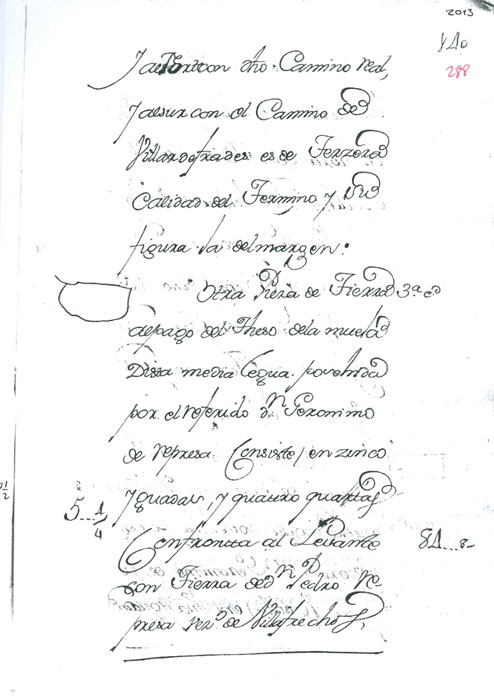 2013
288
Y al Norte con dho Camino real,
Y al sur con el Camino de
Villardefrades es de Terzera
Calidad del Termino y su
figura la del margen:
Otra Pieza de Tierra 3ª
al pago del Theso de la muela
Dista media legua posehida
por el referido Dn Geronimo
de represa Consiste en zinco
Yguadas, y quatro quartas
5 1/4
Confronta al Levante
con Tierra de Dn Pedro Re
presa vezº de Villafrechos,